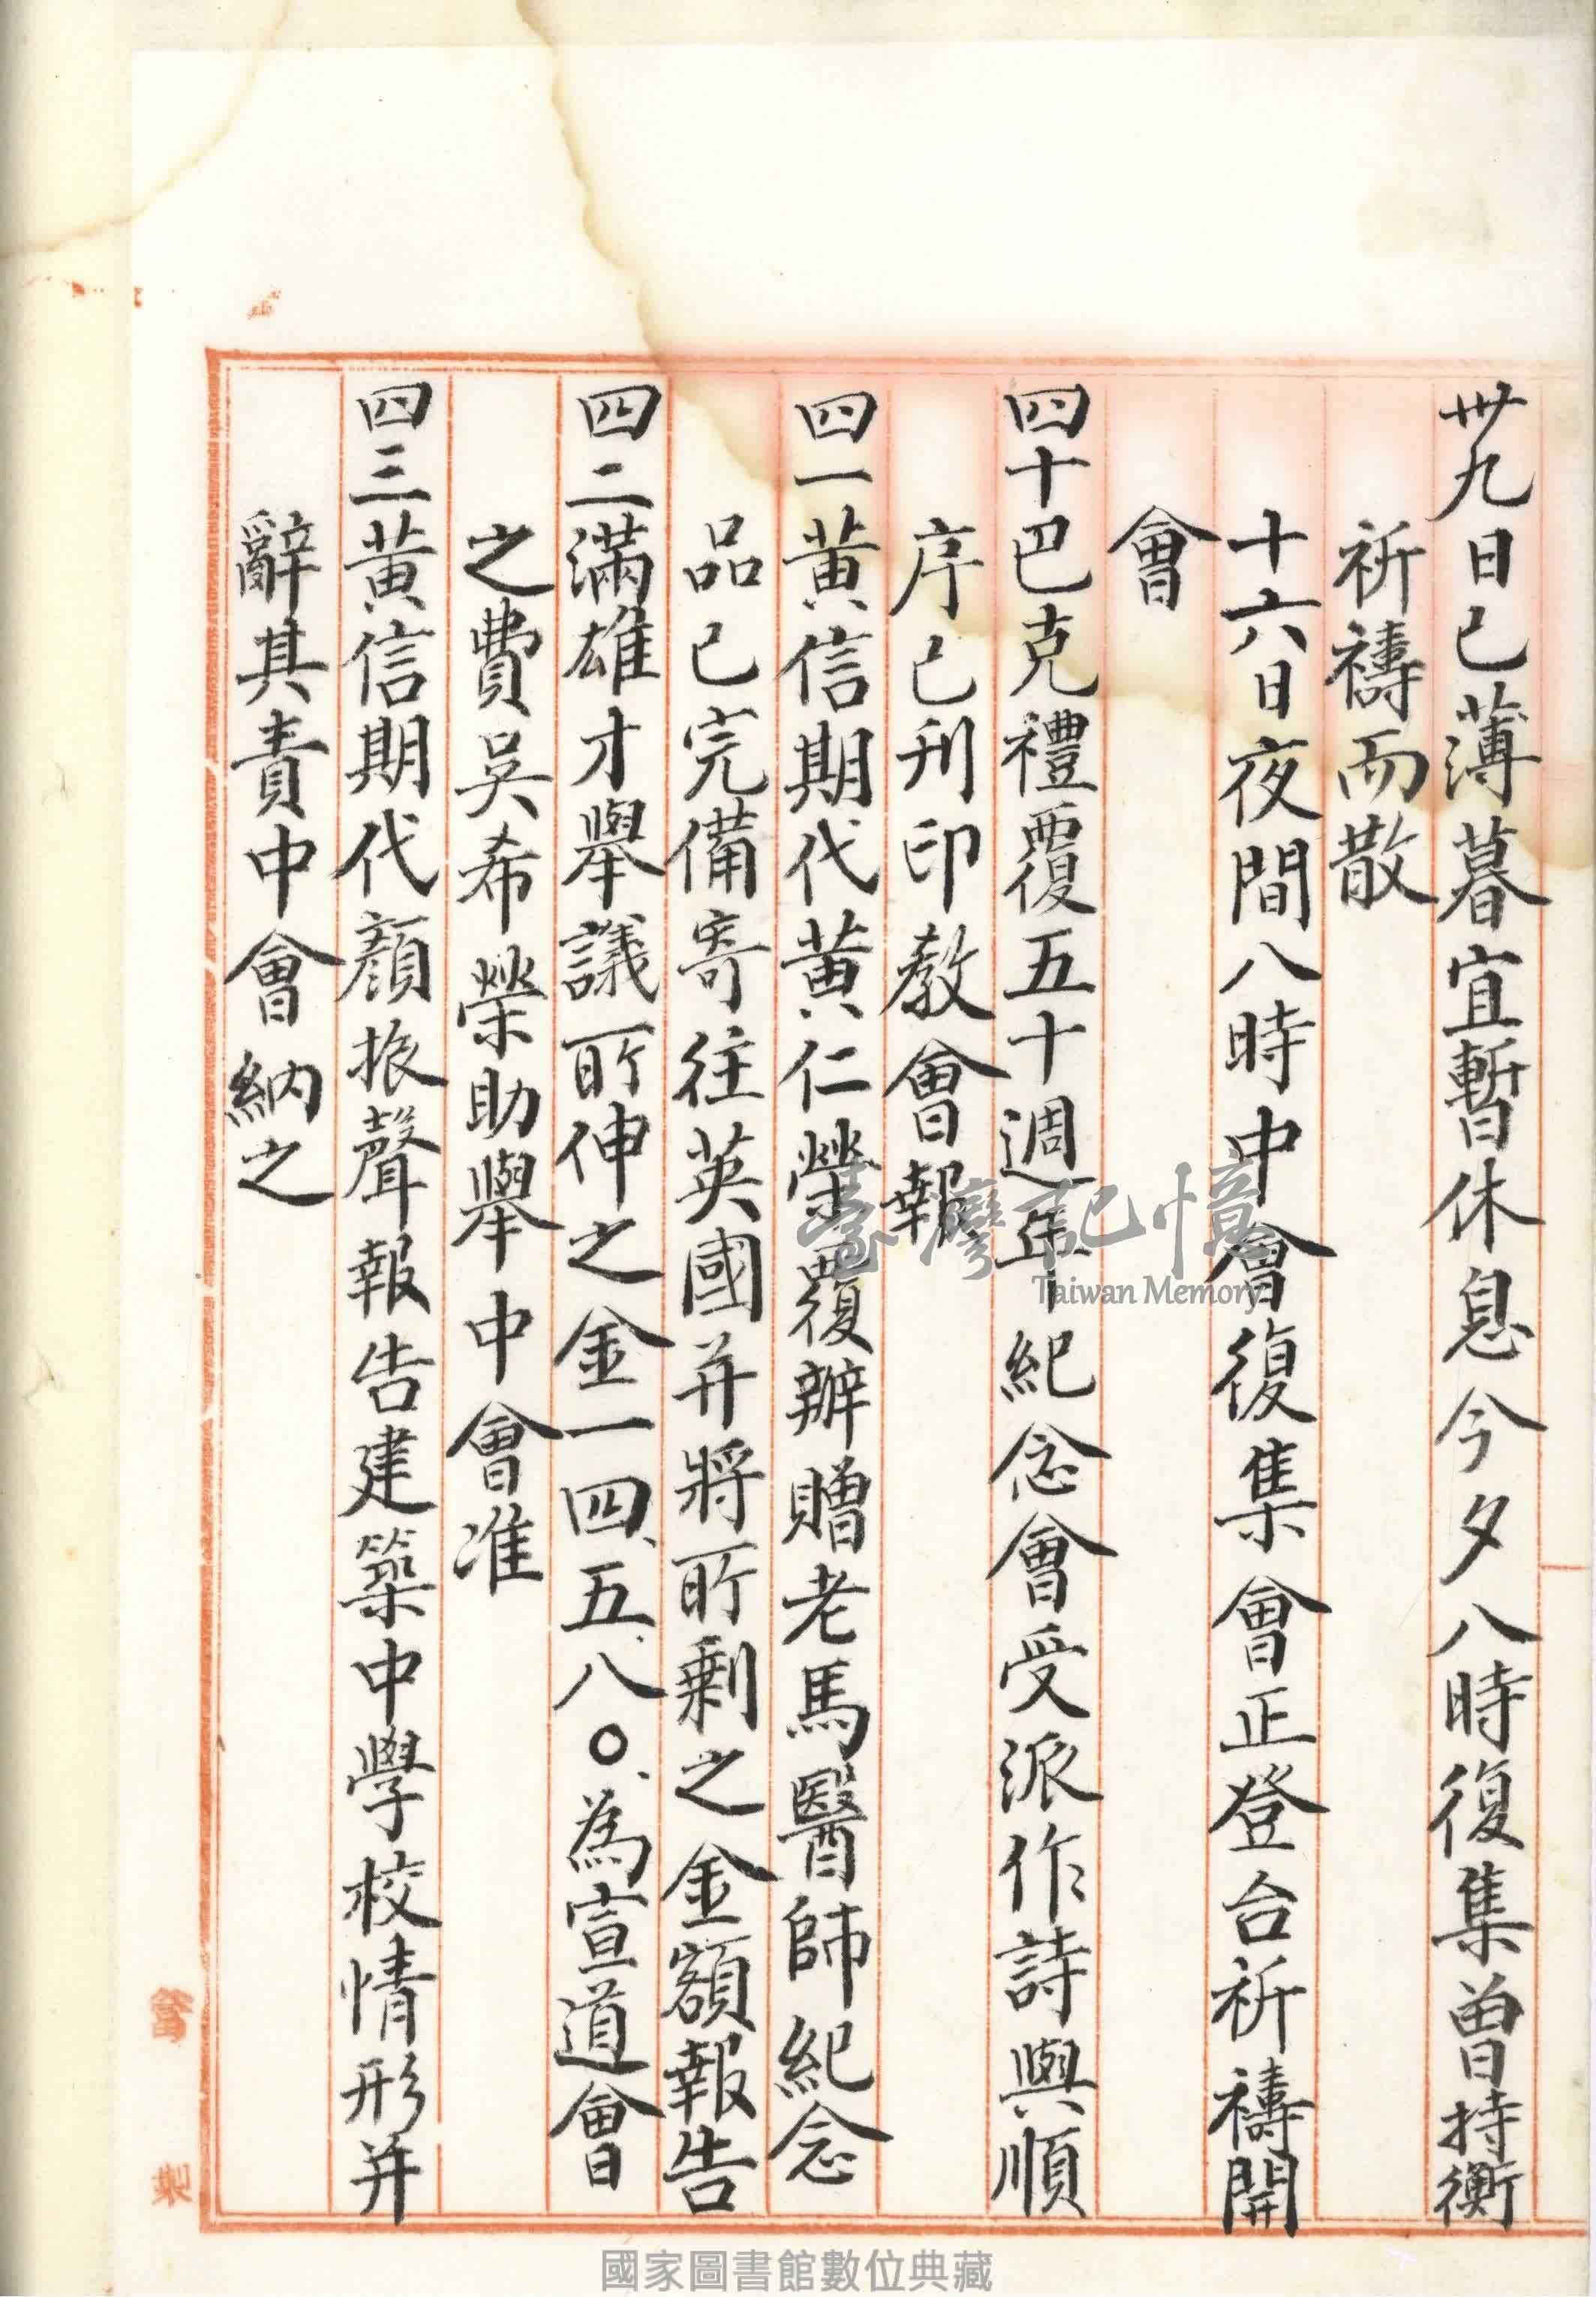 卅九日已薄暮宜暫休息今夕八時復集曾持衡
祈禱而散
十六日夜間八時中會復集會正登台祈禱開
會
四十巴克禮覆五十週年紀念會受派作詩與順
序已刊印教會報
四一黃信期代黃仁榮覆辦贈老馬醫師紀念
品已完備寄往英國并將所剩之金額報告
四二滿雄才舉議所伸之金一四、五、八〇、為宣道會
之費吳希榮助舉中會准
四三黃信期代顏振聲報告建築中學校情形并
辭其責中會納之
臺灣記憶
Taiwan Memory
製
國家圖書館數位典藏